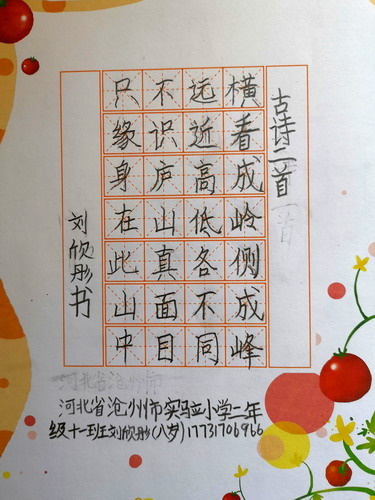 古诗二首
横看成岭侧成峰
远近高低各不同
不识庐山真面目
只缘身在此山中
刘欣彤书
河北省沧州市
河北省沧州市实验小学二年
级十一班刘欣彤(八岁)17731706966